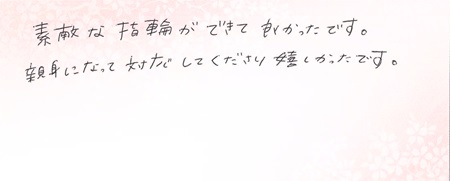 素敵な指輪ができて良かったです。
親身になって対応してくださり嬉しかったです。